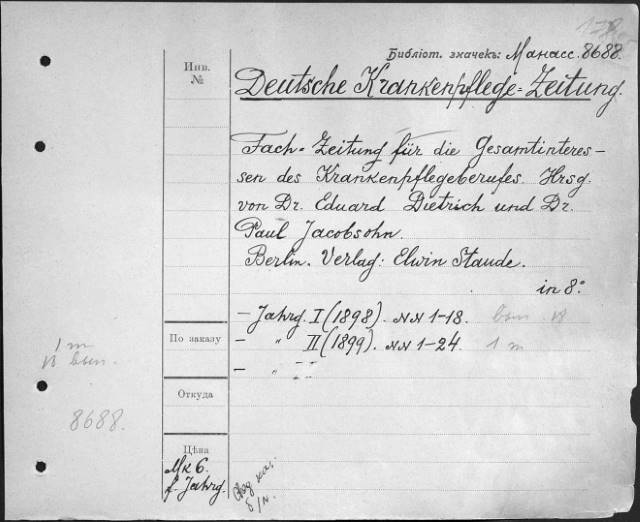 Библіот. значекъ: Манасс. 8688.
Инв.
№
Deutsche Krankenpflege=Zeitung.
Fach=Zeitung für die Gesamtinteres-
sen des Krankenpflegeberufes. Hrsg.
von Dr. Eduard Dietrich und Dr.
Paul Jacobsohn.
Berlin. Verlag: Elwin Staude.
in 8°.
- Jahrg. I (1898). NN 1-18. вып. 18
- " II (1899). NN 1-24. 1 m
- "
По заказу
1 m
18 вып.
Откуда
8688.
Цѣна
Mk 6.
f. Jahrg.